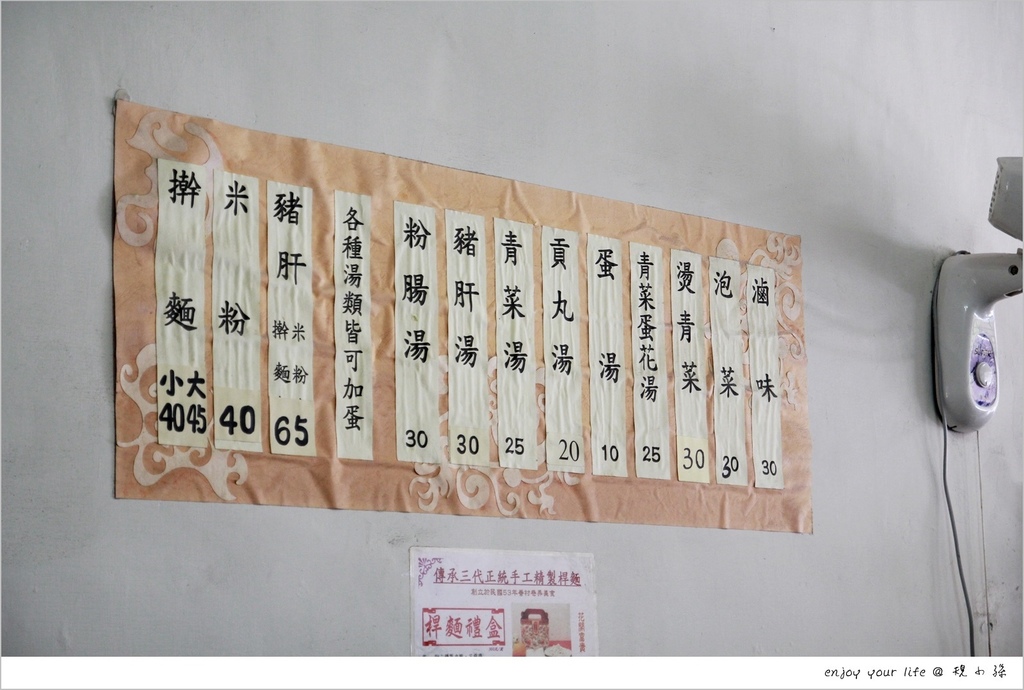 擀麵 小40 大45
米粉 40
豬肝 擀麵 米粉 65
各種湯類皆可加蛋
粉腸湯 30
豬肝湯 30
青菜湯 25
貢丸湯 20
蛋湯 10
青菜蛋花湯 25
燙青菜 30
泡菜 30
滷味 30
傳承三代正統手工精製桿麵
創立於民國53年眷村巷弄美食
桿麵禮盒
enjoy your life @